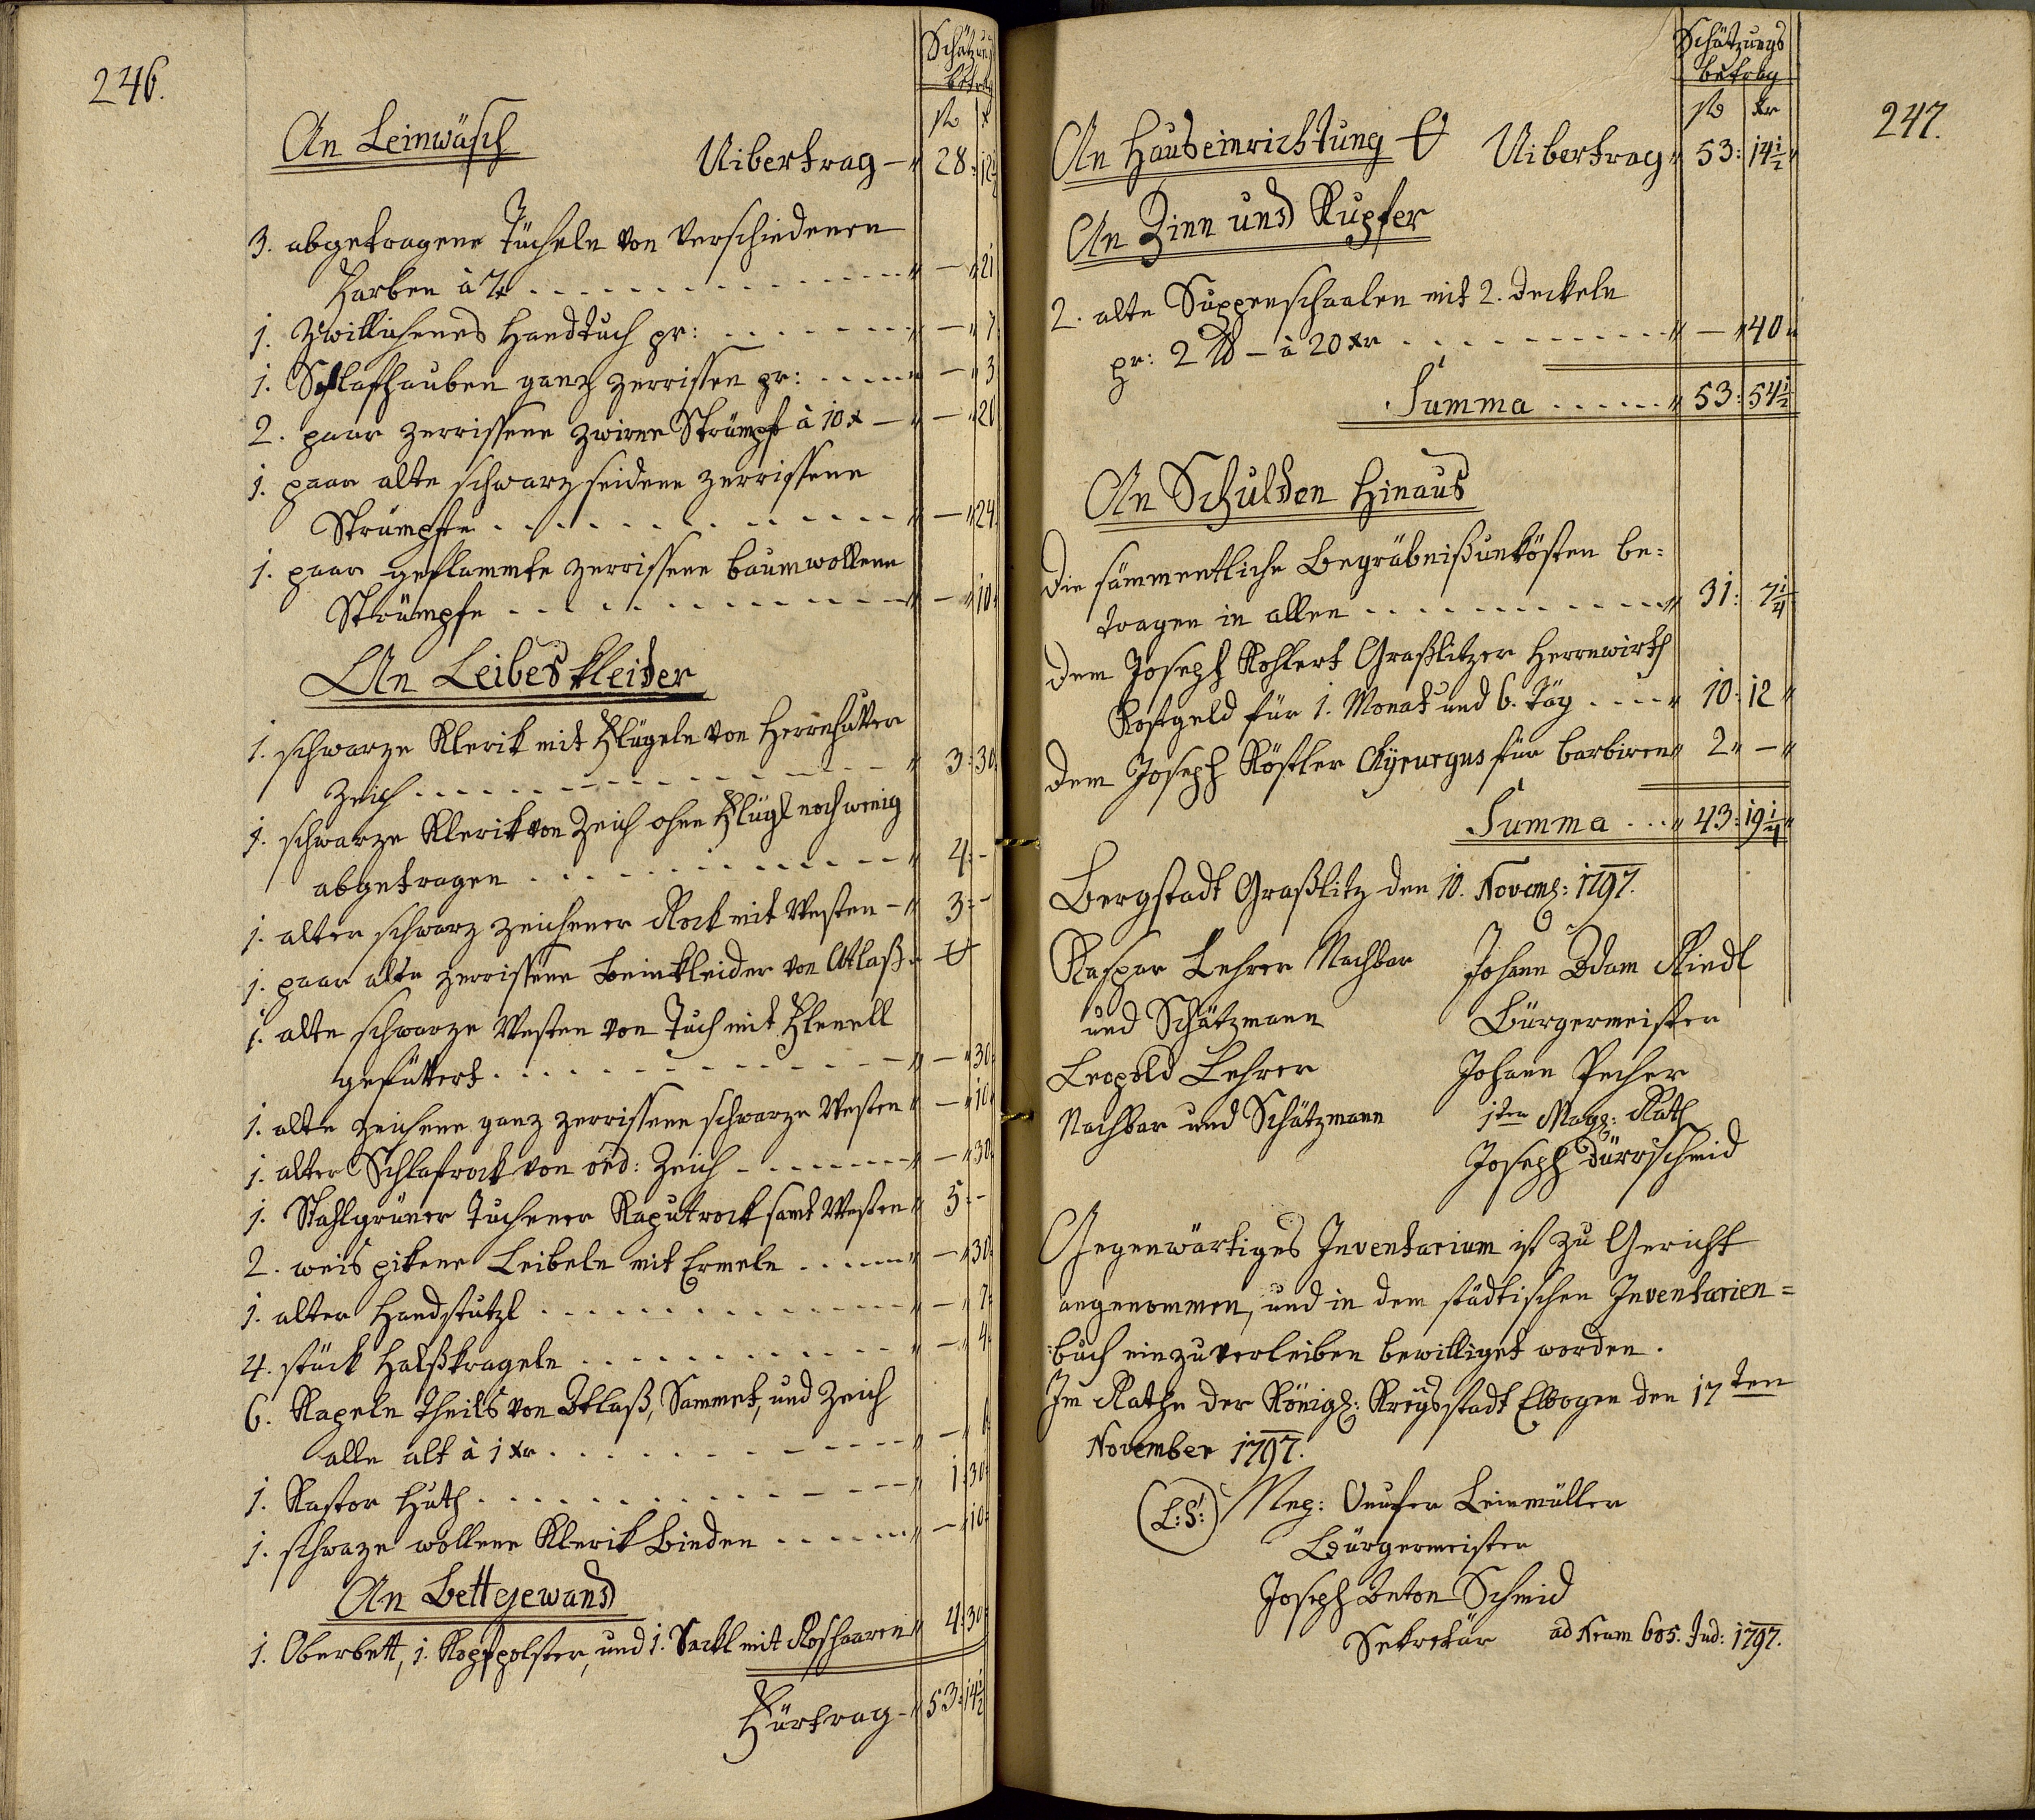 246.
Schätzungs
betrag
fl x
An Leinwäsch
Uibertrag — 28: 12½
3. abgetragene Tücheln von verschiedenen
Farben à 7x . . . . . . — 21
1. Zwillichenes Handtuch pr: . . . . — 7
1. Schlafhauben ganz zerrissen pr: . . . . — 3
2. paar zerrissene zwirne Strümpf à 10x — — 20
1. paar alte schwarz seidene zerrissene
Strümpfe . . . . . . — 24
1. paar geflammte zerrissene baumwollene
Strümpfe . . . . . . — 10
An Leibeskleider
1. schwarze Klerik mit Flügeln von Herrnhutter
Zeich . . . . . . 3: 30
1. schwarze Klerik von Zeich ohne Flügl noch wenig
abgetragen . . . . . . 4: -
1. alter schwarz zeichener Rock mit Westen — 3: -
1. paar alte zerrissene Beinkleider von Atlaß
1. alte schwarze Westen von Tuch mit Flenell
gefüttert . . . . . . — 30
1. alte zeichene ganz zerrissene schwarze Westen — 10
1. alter Schlafrock von ord: Zeich . . . . — 30
1. Stahlgrüner Tuchener Kaputrock samt Westen 5: -
2. weis pikene Leibeln mit Ermeln . . . . — 30
1. alter Handstutzl . . . . . . — 7
4. stück Halßkrageln . . . . . . — 4
6. Kapeln theils von Atlaß, Sammet, und Zeich
alle alt à 1 xr . . . . . . — 6
1. Kastor Huth . . . . . . 1: 30
1. schwaze wollene Klerik Binden . . . . — 10
An Bettgewand
1. Oberbett, 1. Kopfpolster, und 1. Sackl mit Roshaaren 4: 30
Fürtrag — 53: 14½
247.
Schätzungs
betrag
fl xr
An Hauseinrichtung Uibertrag 53: 14½
An Zinn und Kupfer
2. alte Suppenschaalen mit 2. Deckeln
pr: 2 ℔ — à 20 xr . . . . . . — 40
Summa . . . . 53: 54½
An Schulden Hinaus
Die sämmentliche Begräbnißunkösten be=
tragen in allen . . . . . . 31: 7¼
Dem Joseph Kohlert Graßlitzer Herrnwirth
Kostgeld für 1. Monat und 6. Täg . . . . 10: 12
Dem Joseph Röstler Chyrurgus für barbiren 2 —
Summa . . . 43: 19¼
Bergstadt Graßlitz den 10. Novemb: 1797.
Kaspar Lehrer Nachbar Johann Adam Riedl
und Schätzmann Bürgermeister
Leopold Lehrer Johann Pecher
Nachbar und Schätzmann 1ter Mag: Rath
Joseph Dürrschmid
Gegenwärtiges Inventarium ist zu Gericht
angenommen, und in dem städtischen Inventarien=
buch einzuverleiben bewilliget worden.
Im Rathe der Königl: Kreysstadt Elbogen den 17ten
November 1797.
(L:S:) Nep: Leinmüller
Bürgermeister
Joseph Anton Schmid
Sekretär ad Nrum 605. Jud: 1797.